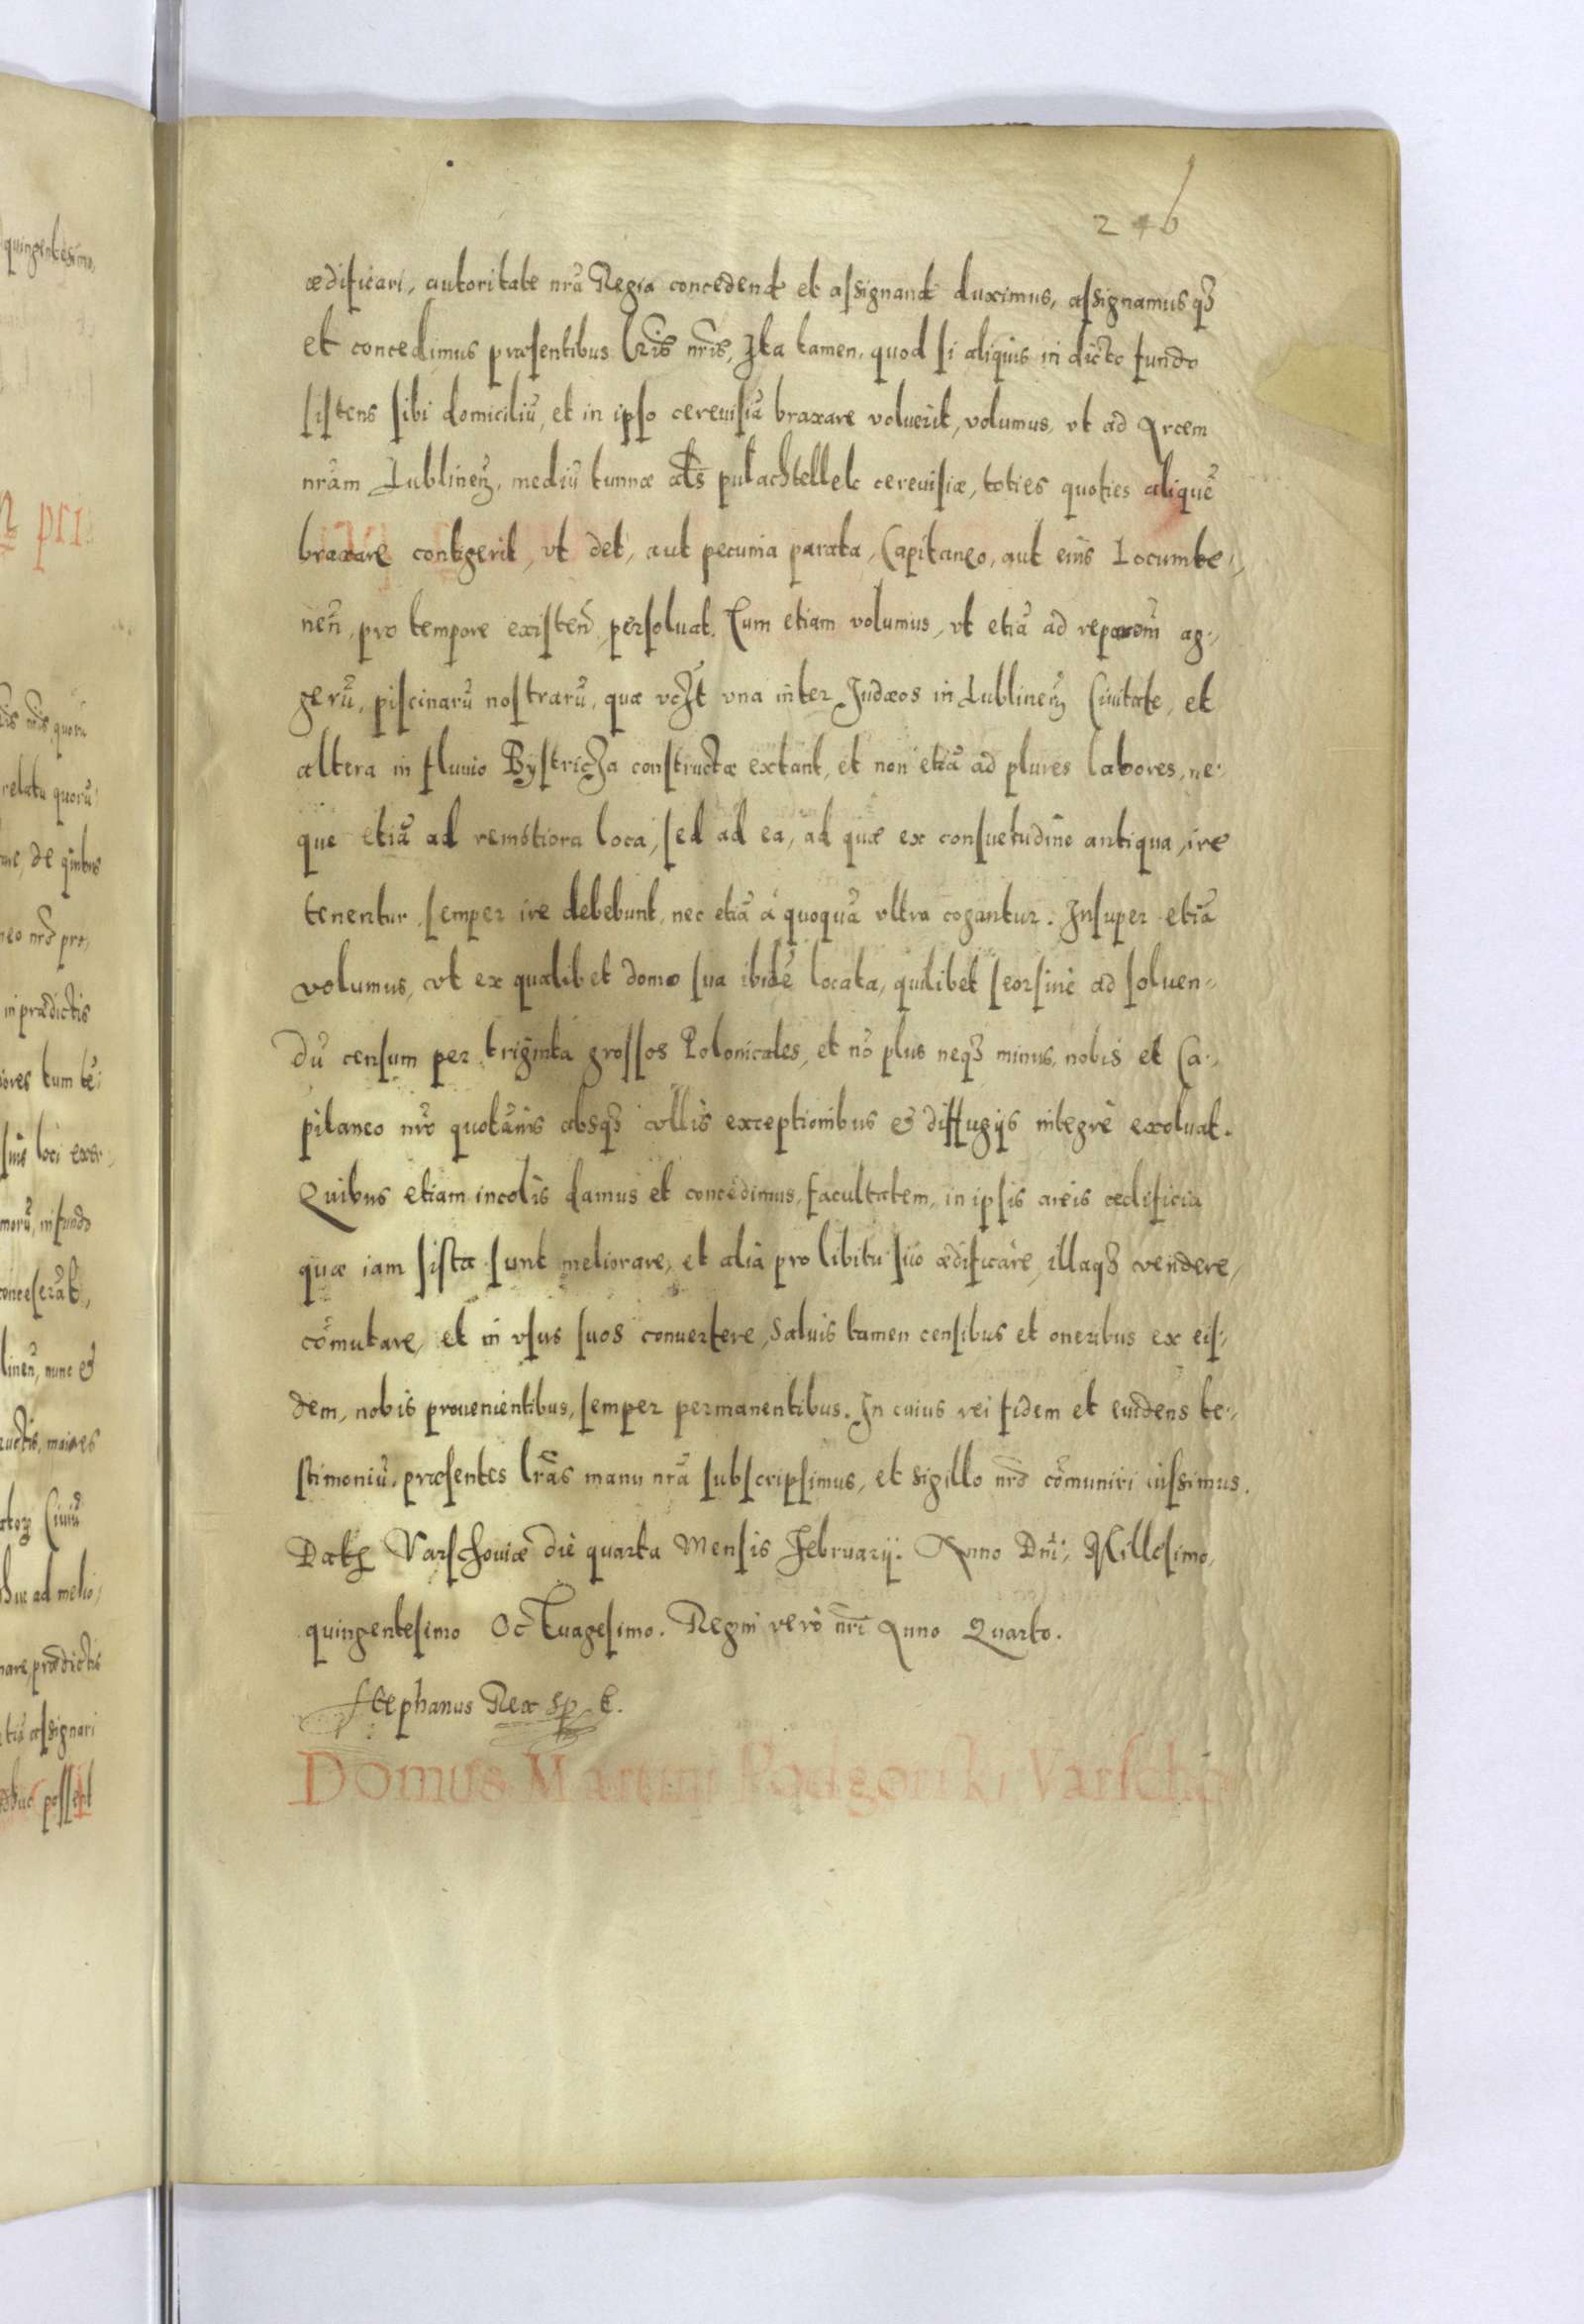 246
ædificari, autoritate nrã Regia concedend et aſsignand duximus, aſsignamusqȝ
et concedimus præsentibus lrĩs nrĩs, Ita tamen, quod ſi aliquis in dicto fundo
ſiſtens ſibi domiciliũ, et in ipſo cereuiſiã braxare voluerit, volumus, vt ad Arcem
nrãm Lublineñ, mediũ tunnæ als pulachtellek cereuiſiæ, toties quoties aliquẽ
braxare contigerit, vt det, aut pecunia parata, Capitaneo, aut eius Locumte-
neñ, pro tempore exiſteñ, perſoluat. Cum etiam volumus, vt etiã ad reparoñi ag-
gerũ, piſcinarũ noſtrarũ, quæ vcȝt vna inter Judæos in Lublineñ Ciuitate, et
altera in fluuio Byſtricȝa conſtructæ extant, et non etiã ad plures labores, ne-
que etiã ad remotiora loca, ſed ad ea, ad quæ ex conſuetudine antiqua, ire
tenentur, ſemper ire debebunt, nec etiã à quoquã vltra cogantur. Inſuper etiã
volumus, vt ex qualibet domo ſua ibidẽ locata, quilibet ſeorſiue ad ſoluen-
dũ cenſum per triginta groſſos Polonicales, et nõ plus neqȝ minus, nobis et Ca-
pitaneo nrõ quotãnis absqȝ vllis exceptionibus & diffugijs integrè exoluat.
Quibus etiam incolis damus et concedimus, facultatem, in ipſis areis ædificia
quæ iam ſiſta ſunt meliorare, et alia pro libitu ſuo ædificare, illaqȝ vendere,
cõmutare, et in vſus ſuos conuertere, Saluis tamen cenſibus et oneribus ex eiſ-
dem, nobis prouenientibus, ſemper permanentibus. In cuius rei fidem et euidens te-
ſtimoniũ, præſentes lrãs manu nrã ſubſcripſimus, et sigillo nrõ cõmuniri iuſsimus.
Datȝ Varſchouiæ die quarta Menſis Februarij. Anno Dñi; Milleſimo,
quingenteſimo Octuageſimo. Regni verò nrĩ Anno Quarto.
Stephanus Rex
Domus Martini Podgorſki Varſchõ